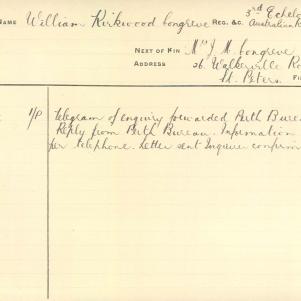 NAME William Kirkwood Congreve REG. &C. 3rd Echelo
Australian
NEXT OF KIN Mrs J. M. Congreve
ADDRESS 26 Walkerville Ro
St. Peters
Telegram of enquiry forwarded Perth Bure
Reply from Perth Bureau. Information
per telephone. Letter sent Inquirer confirm